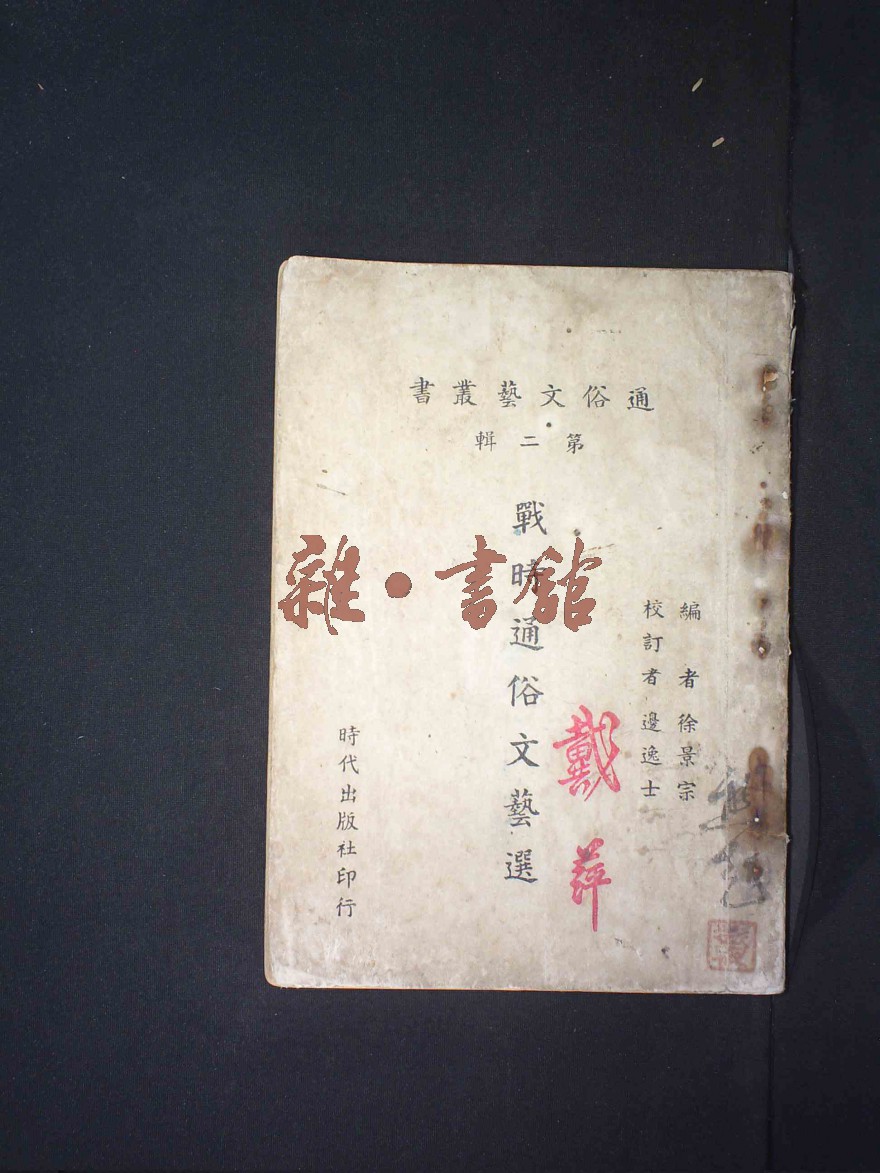 通俗文藝叢書
第二輯
編者 徐景宗
校訂者 邊逸士
戰時通俗文藝選
時代出版社印行
戴萍
雜·書館